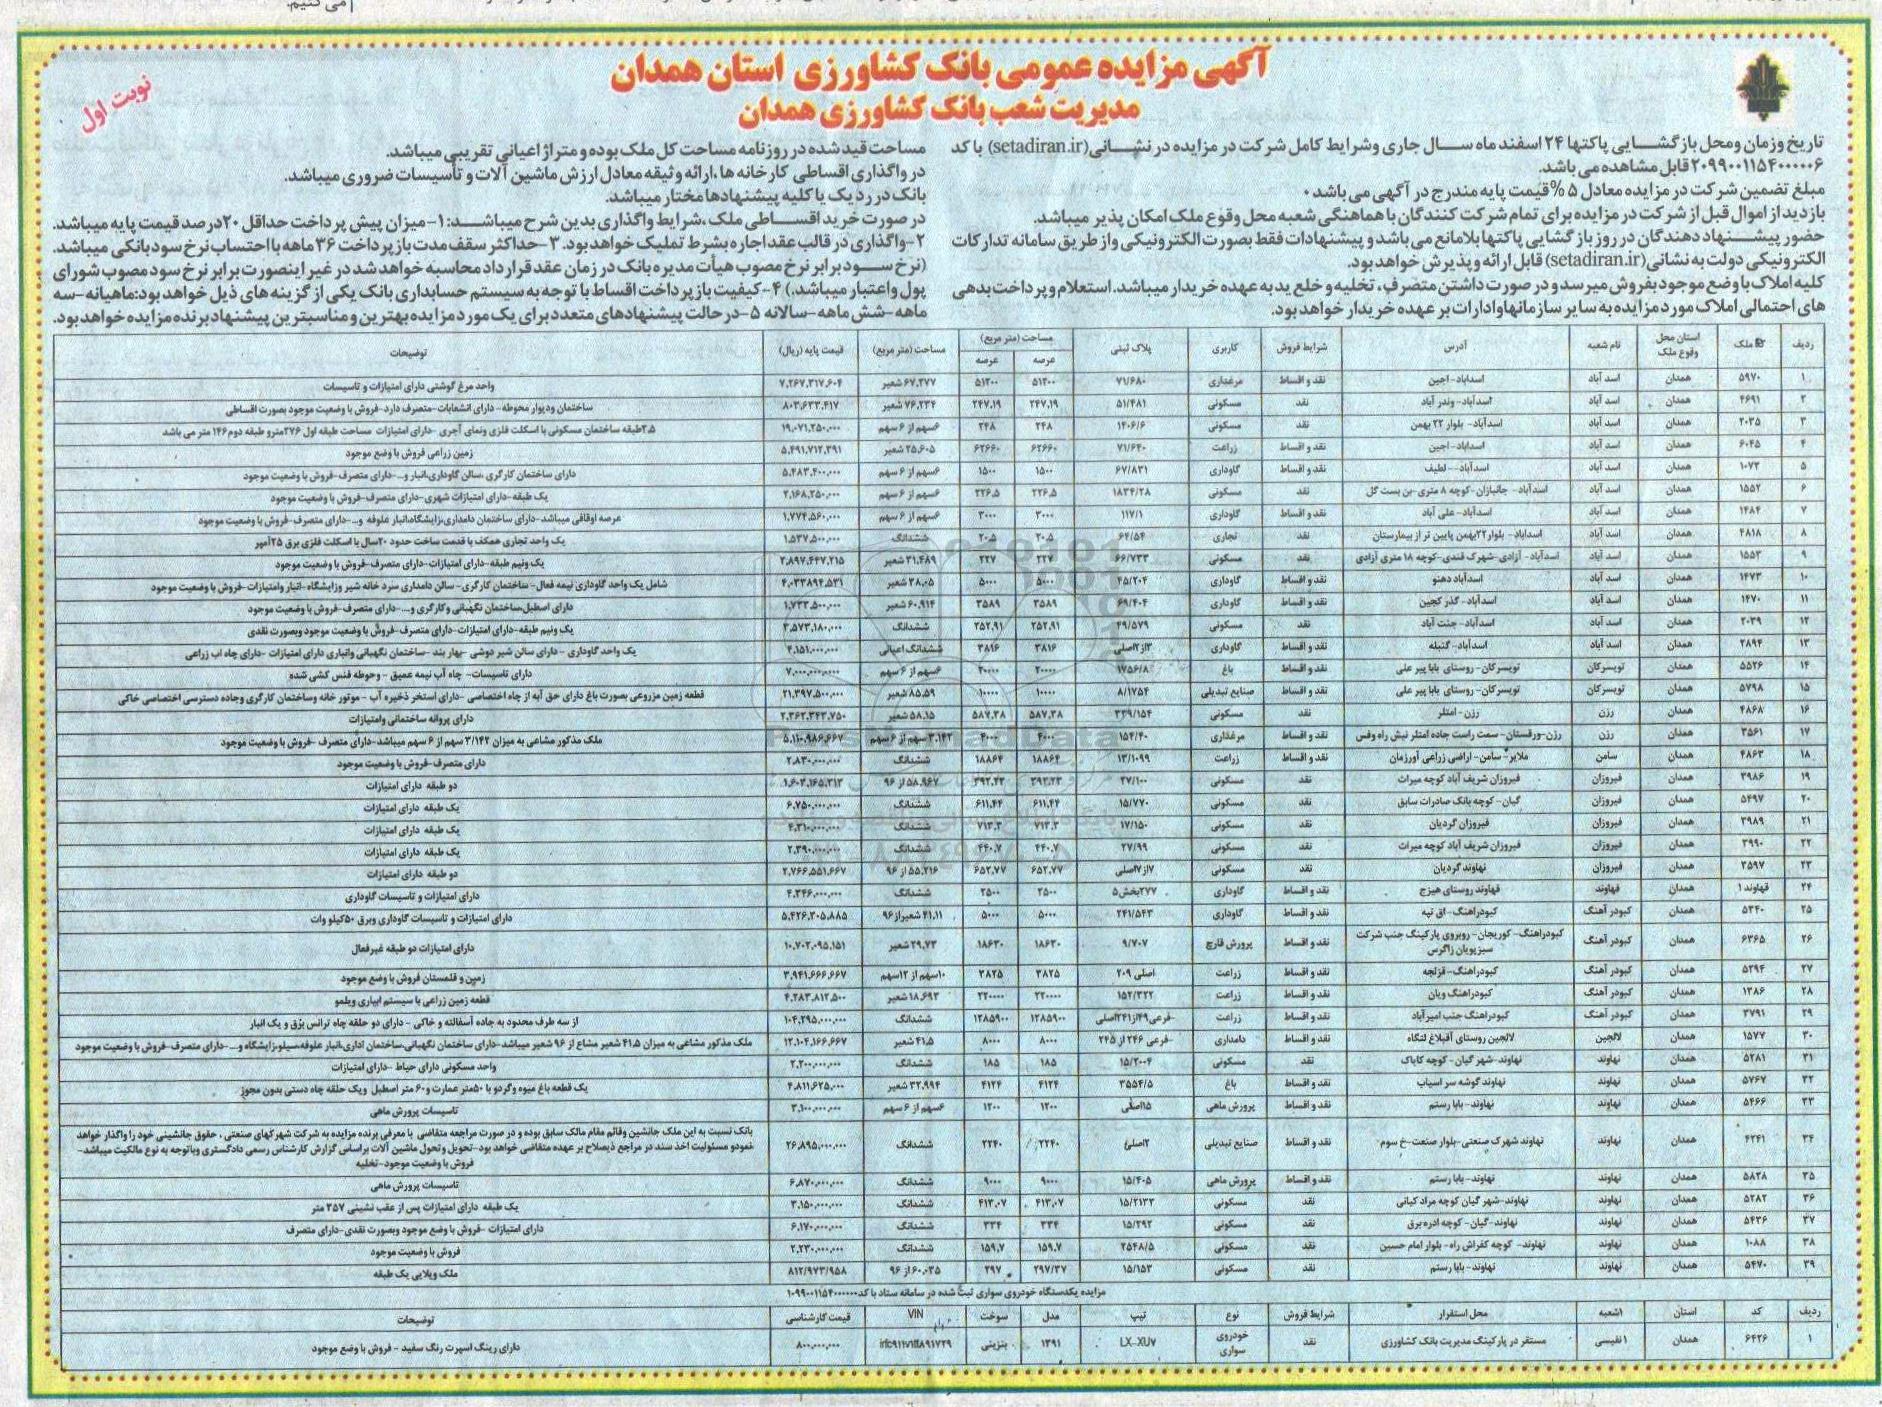 آگهی مزایده عمومی بانک کشاورزی استان همدان
مدیریت شعب بانک کشاورزی همدان
نوبت اول
تاریخ وزمان ومحل بازگشایی پاکتها ۲۴ اسفند ماه سال جاری وشرایط کامل شرکت در مزایده در نشانی(setadiran.ir) با کد
۲۰۹۹۰۰۱۱۵۴۰۰۰۰۰۶ قابل مشاهده می باشد.
مبلغ تضمین شرکت در مزایده معادل ۵ %قیمت پایه مندرج در آگهی می باشد.
بازدید از اموال قبل از شرکت در مزایده برای تمام شرکت کنندگان با هماهنگی شعبه محل وقوع ملک امکان پذیر میباشد.
حضور پیشنهاد دهندگان در روز بازگشایی پاکتها بلامانع می باشد و پیشنهادات فقط بصورت الکترونیکی واز طریق سامانه تدارکات
الکترونیکی دولت به نشانی(setadiran.ir) قابل ارائه و پذیرش خواهد بود.
کلیه املاک با وضع موجود بفروش میرسد و در صورت داشتن متصرف، تخلیه و خلع ید به عهده خریدار میباشد. استعلام و پرداخت بدهی
های احتمالی املاک مورد مزایده به سایر سازمانها وادارات بر عهده خریدار خواهد بود.
مساحت قید شده در روزنامه مساحت کل ملک بوده و متراژ اعیانی تقریبی میباشد.
در واگذاری اقساطی کارخانه ها ،ارائه وثیقه معادل ارزش ماشین آلات و تأسیسات ضروری میباشد.
بانک در رد یک یا کلیه پیشنهادها مختار میباشد.
در صورت خرید اقساطی ملک ،شرایط واگذاری بدین شرح میباشد: ۱-میزان پیش پرداخت حداقل ۲۰درصد قیمت پایه میباشد.
۲-واگذاری در قالب عقد اجاره بشرط تملیک خواهد بود. ۳-حداکثر سقف مدت بازپرداخت ۳۶ ماهه با احتساب نرخ سود بانکی میباشد.
(نرخ سود برابر نرخ مصوب هیأت مدیره بانک در زمان عقد قرارداد محاسبه خواهد شد در غیر اینصورت برابر نرخ سود مصوب شورای
پول واعتبار میباشد.) ۴-کیفیت بازپرداخت اقساط با توجه به سیستم حسابداری بانک یکی از گزینه های ذیل خواهد بود:ماهیانه-سه
ماهه-شش ماهه-سالانه ۵-در حالت پیشنهادهای متعدد برای یک مورد مزایده بهترین و مناسبترین پیشنهاد برنده مزایده خواهد بود.
ردیف کد ملک استان محل وقوع ملک نام شعبه آدرس شرایط فروش کاربری پلاک ثبتی مساحت (متر مربع) عرصه عرصه مساحت (متر مربع) قیمت پایه (ریال) توضیحات
۱ ۵۹۷۰ همدان اسد آباد اسداباد-اجین نقد و اقساط مرغداری ۷۱/۶۸۰ ۵۱۲۰۰ ۵۱۲۰۰ ۶۷.۲۷۷شعیر ۷.۲۶۷.۳۱۷.۶۰۴ واحد مرغ گوشتی دارای امتیازات و تاسیسات
۲ ۴۶۹۱ همدان اسد آباد اسدآباد-وندر آباد نقد مسکونی ۵۱/۴۸۱ ۲۴۷.۱۹ ۲۴۷.۱۹ ۷۶.۲۳۴ شعیر ۸۰۳.۶۳۳.۴۱۷ ساختمان ودیوار محوطه- دارای انشعابات-متصرف دارد-فروش با وضعیت موجود بصورت اقساطی
۳ ۲۰۳۵ همدان اسد آباد اسدآباد- بلوار ۲۲ بهمن نقد مسکونی ۱۴۰۶/۶ ۲۴۸ ۲۴۸ ۶سهم از ۶ سهم ۱۹.۰۷۱.۲۵۰.۰۰۰ ۲.۵طبقه ساختمان مسکونی با اسکلت فلزی ونمای آجری -دارای امتیازات مساحت طبقه اول ۲۷۶مترو طبقه دوم۱۴۶ متر می باشد
۴ ۶۰۴۵ همدان اسد آباد اسداباد-اجین نقد و اقساط زراعت ۷۱/۶۴۰ ۶۲۶۶۰ ۶۲۶۶۰ ۲۵.۶۰۵ شعیر ۵.۴۹۱.۷۱۲.۳۹۱ زمین زراعی فروش با وضع موجود
۵ ۱۰۷۲ همدان اسد آباد اسدآباد--لطیف نقد و اقساط گاوداری ۶۷/۸۳۱ ۱۵۰۰ ۱۵۰۰ ۶سهم از ۶ سهم ۵.۴۸۳.۴۰۰.۰۰۰ دارای ساختمان کارگری ،سالن گاوداری،انبار و...-دارای متصرف-فروش با وضعیت موجود
۶ ۱۵۵۲ همدان اسد آباد اسدآباد- جانبازان-کوچه ۸ متری-بن بست گل نقد مسکونی ۱۸۳۴/۲۸ ۲۲۶.۵ ۲۲۶.۵ ۶سهم از ۶ سهم ۲.۱۶۸.۲۵۰.۰۰۰ یک طبقه-دارای امتیازات شهری-دارای متصرف-فروش با وضعیت موجود
۷ ۱۴۸۴ همدان اسد آباد اسدآباد- علی آباد نقد و اقساط گاوداری ۱۱۷/۱ ۳۰۰۰ ۳۰۰۰ ۶سهم از ۶ سهم ۱.۷۷۴.۵۶۰.۰۰۰ عرصه اوقافی میباشد-دارای ساختمان دامداری،زایشگاه،انبار علوفه و...-دارای متصرف-فروش با وضعیت موجود
۸ ۴۸۱۸ همدان اسد آباد اسداباد- بلوار۲۲بهمن پایین تر از بیمارستان نقد تجاری ۶۴/۵۴ ۲۰.۵ ۲۰.۵ ششدانگ ۱.۵۳۷.۵۰۰.۰۰۰ یک واحد تجاری همکف با قدمت ساخت حدود ۲۰سال با اسکلت فلزی برق ۲۵آمپر
۹ ۱۵۵۳ همدان اسد آباد اسدآباد- آزادی-شهرک قندی-کوچه ۱۸ متری آزادی نقد مسکونی ۶۶/۷۳۳ ۲۲۷ ۲۲۷ ۳۱.۴۸۹شعیر ۲.۸۹۷.۴۴۷.۲۱۵ یک ونیم طبقه-دارای امتیازات-دارای متصرف-فروش با وضعیت موجود
۱۰ ۱۴۷۳ همدان اسد آباد اسدآباد دهنو نقد و اقساط گاوداری ۴۵/۲۰۴ ۵۰۰۰ ۵۰۰۰ ۳۸.۰۵شعیر ۴.۰۳۳۸۹۴.۵۳۱ شامل یک واحد گاوداری نیمه فعال- ساختمان کارگری- سالن دامداری سرد خانه شیر وزایشگاه -انبار وامتیازات-فروش با وضعیت موجود
۱۱ ۱۴۷۰ همدان اسد آباد اسدآباد- گذر کجین نقد و اقساط گاوداری ۶۹/۴۰۴ ۳۵۸۹ ۳۵۸۹ ۶۰.۹۱۴شعیر ۱.۷۳۳.۵۰۰.۰۰۰ دارای اصطبل،ساختمان نگهبانی وکارگری و...-دارای متصرف-فروش با وضعیت موجود
۱۲ ۲۰۳۹ همدان اسد آباد اسدآباد- جنت آباد نقد مسکونی ۴۹/۵۷۹ ۲۵۲.۹۱ ۲۵۲.۹۱ ششدانگ ۳.۵۷۳.۱۸۰.۰۰۰ یک ونیم طبقه-دارای امتیازات-دارای متصرف-فروش با وضعیت موجود وبصورت نقدی
۱۳ ۲۸۹۴ همدان اسد آباد اسدآباد- گنبله نقد و اقساط گاوداری ۳از۱۲اصلی ۳۸۱۶ ۳۸۱۶ ششدانگ اعیانی ۴.۱۵۱.۰۰۰.۰۰۰ یک واحد گاوداری - دارای سالن شیر دوشی -بهار بند -ساختمان نگهبانی وانباری دارای امتیازات -دارای چاه اب زراعی
۱۴ ۵۵۲۶ همدان تویسرکان تویسرکان- روستای بابا پیر علی نقد و اقساط باغ ۱۷۵۶/۸ ۲۰۰۰۰ ۲۰۰۰۰ ۶سهم از ۶ سهم ۷.۰۰۰.۰۰۰.۰۰۰ دارای تاسیسات- چاه آب نیمه عمیق - وحوطه فنس کشی شده
۱۵ ۵۷۹۸ همدان تویسرکان تویسرکان- روستای بابا پیر علی نقد و اقساط صنایع تبدیلی ۸/۱۷۵۴ ۱۰۰۰۰ ۱۰۰۰۰ ۸۵.۵۹ شعیر ۲۱.۳۹۷.۵۰۰.۰۰۰ قطعه زمین مزروعی بصورت باغ دارای حق آبه از چاه اختصاصی -دارای استخر ذخیره آب - موتور خانه وساختمان کارگری وجاده دسترسی اختصاصی خاکی
۱۶ ۴۸۶۸ همدان رزن رزن- امتلر نقد مسکونی ۳۳۹/۱۵۴ ۵۸۷.۳۸ ۵۸۷.۳۸ ۵۸.۱۵شعیر ۲.۳۶۲.۳۴۳.۷۵۰ دارای پروانه ساختمانی وامتیازات
۱۷ ۳۵۶۱ همدان رزن رزن-ورقستان- سمت راست جاده امتلر نبش راه وفس نقد و اقساط مرغداری ۱۵۴/۴۰ ۴۰۰۰ ۴۰۰۰ ۳.۱۴۲ سهم از ۶ سهم ۵.۱۱۰.۹۸۶.۶۶۷ ملک مذکور مشاعی به میزان ۳/۱۴۲ سهم از ۶ سهم میباشد-دارای متصرف -فروش با وضعیت موجود
۱۸ ۴۸۶۳ همدان سامن ملایر- سامن- اراضی زراعی آورزمان نقد و اقساط زراعت ۱۳/۱۰۹۹ ۱۸۸۶۴ ۱۸۸۶۴ ششدانگ ۲.۸۳۰.۰۰۰.۰۰۰ دارای متصرف-فروش با وضعیت موجود
۱۹ ۳۹۸۶ همدان فیروزان فیروزان شریف آباد کوچه میراث نقد مسکونی ۲۷/۱۰۰ ۳۹۲.۲۳ ۳۹۲.۲۳ ۵۸.۹۶۷ از ۹۶ ۱.۶۰۳.۱۶۵.۳۱۳ دو طبقه دارای امتیازات
۲۰ ۵۴۹۷ همدان فیروزان گیان- کوچه بانک صادرات سابق نقد مسکونی ۱۵/۷۷۰ ۶۱۱.۴۴ ۶۱۱.۴۴ ششدانگ ۶.۷۵۰.۰۰۰.۰۰۰ یک طبقه دارای امتیازات
۲۱ ۳۹۸۹ همدان فیروزان فیروزان گردیان نقد مسکونی ۱۷/۱۵۰ ۷۱۳.۳ ۷۱۳.۳ ششدانگ ۴.۳۱۰.۰۰۰.۰۰۰ یک طبقه دارای امتیازات
۲۲ ۳۹۹۰ همدان فیروزان فیروزان شریف آباد کوچه میراث نقد مسکونی ۲۷/۹۹ ۴۴۰.۷ ۴۴۰.۷ ششدانگ ۲.۳۹۰.۰۰۰.۰۰۰ یک طبقه دارای امتیازات
۲۳ ۳۵۹۷ همدان فیروزان نهاوند گردیان نقد مسکونی ۷از۱۷اصلی ۶۵۲.۷۷ ۶۵۲.۷۷ ۵۵.۲۱۶ از ۹۶ ۲.۷۶۶.۵۵۱.۶۶۷ دو طبقه دارای امتیازات
۲۴ قهاوند ۱ همدان قهاوند قهاوند روستای هیزج نقد و اقساط گاوداری ۲۷۷بخش۵ ۲۵۰۰ ۲۵۰۰ ششدانگ ۴.۳۴۶.۰۰۰.۰۰۰ دارای امتیازات و تاسیسات گاوداری
۲۵ ۵۳۴۰ همدان کبودر آهنگ کبودراهنگ-اق تپه نقد و اقساط گاوداری ۲۴۱/۵۴۳ ۵۰۰۰ ۵۰۰۰ ۴۱.۱۱ شعیراز۹۶ ۵.۴۲۶.۳۰۵.۸۸۵ دارای امتیازات و تاسیسات گاوداری وبرق ۵۰کیلو وات
۲۶ ۶۳۶۵ همدان کبودر آهنگ کبودراهنگ- کوریجان- روبروی پارکینگ جنب شرکت سبزپویان زاگرس نقد و اقساط پرورش قارچ ۹/۷۰۷ ۱۸۶۳۰ ۱۸۶۳۰ ۲۹.۷۳ شعیر ۱۰.۷۰۲.۰۹۵.۱۵۱ دارای امتیازات دو طبقه غیرفعال
۲۷ ۵۲۹۴ همدان کبودر آهنگ کبودراهنگ- قزلجه نقد و اقساط زراعت اصلی ۲۰۹ ۳۸۲۵ ۳۸۲۵ ۱۰سهم از ۱۲سهم ۳.۹۴۱.۶۶۶.۶۶۷ زمین و قلمستان فروش با وضع موجود
۲۸ ۱۳۸۶ همدان کبودر آهنگ کبودراهنگ ویان نقد و اقساط زراعت ۱۵۲/۳۲۲ ۲۲۰۰۰۰ ۲۲۰۰۰۰ ۱۸.۶۹۳شعیر ۴.۲۸۳.۸۱۲.۵۰۰ قطعه زمین زراعی با سیستم ابیاری ویلمو
۲۹ ۳۷۹۱ همدان کبودر آهنگ کبودراهنگ جنب امیرآباد نقد و اقساط زراعت -فرعی۴۹از۲۴۱اصلی ۱۲۸۵۹۰۰ ۱۲۸۵۹۰۰ ششدانگ ۱۰۴.۲۹۵.۰۰۰.۰۰۰ از سه طرف محدود به جاده آسفالته و خاکی - دارای دو حلقه چاه ترانس برق و یک انبار
۳۰ ۱۵۷۷ همدان لالجین لالجین روستای آقبلاغ لتگاه نقد و اقساط دامداری -فرعی ۲۴۶ از ۲۴۵ ۸۰۰۰ ۸۰۰۰ ۴۱.۵ شعیر ۱۲.۱۰۴.۱۶۶.۶۶۷ ملک مذکور مشاعی به میزان ۴۱.۵ شعیر مشاع از ۹۶ شعیر میباشد-دارای ساختمان نگهبانی،ساختمان اداری،انبار علوفه،سیلو،زایشگاه و...-دارای متصرف-فروش با وضعیت موجود
۳۱ ۵۲۸۱ همدان نهاوند نهاوند-شهر گیان- کوچه کاباک نقد مسکونی ۱۵/۲۰۰۴ ۱۸۵ ۱۸۵ ششدانگ ۲.۲۰۰.۰۰۰.۰۰۰ واحد مسکونی دارای حیاط -دارای امتیازات
۳۲ ۵۷۶۷ همدان نهاوند نهاوند گوشه سر اسیاب نقد و اقساط باغ ۳۵۵۴/۵ ۴۱۲۴ ۴۱۲۴ ۳۲.۹۹۴ شعیر ۴.۸۱۱.۶۲۵.۰۰۰ یک قطعه باغ میوه وگردو با ۵۰متر عمارت و۶۰ متر اصطبل ویک حلقه چاه دستی بدون مجوز
۳۳ ۵۴۶۶ همدان نهاوند نهاوند-بابا رستم نقد و اقساط پرورش ماهی ۱۵اصلی ۱۲۰۰ ۱۲۰۰ ۶سهم از ۶ سهم ۳.۱۰۰.۰۰۰.۰۰۰ تاسیسات پرورش ماهی
۳۴ ۴۲۴۱ همدان نهاوند نهاوند شهرک صنعتی-بلوار صنعت-خ سوم نقد و اقساط صنایع تبدیلی ۲اصلی ۲۲۴۰ ۲۲۴۰ ششدانگ ۲۶.۸۹۵.۰۰۰.۰۰۰ بانک نسبت به این ملک جانشین وقائم مقام مالک سابق بوده و در صورت مراجعه متقاضی با معرفی برنده مزایده به شرکت شهرکهای صنعتی ، حقوق جانشینی خود را واگذار خواهد
نمودو مسئولیت اخذ سند در مراجع ذیصلاح بر عهده متقاضی خواهد بود-تحویل و تحول ماشین آلات براساس گزارش کارشناس رسمی دادگستری وباتوجه به نوع مالکیت میباشد-
فروش با وضعیت موجود-تخلیه
۳۵ ۵۸۳۸ همدان نهاوند نهاوند- بابا رستم نقد و اقساط پرورش ماهی ۱۵/۴۰۵ ۹۰۰۰ ۹۰۰۰ ششدانگ ۶.۸۷۰.۰۰۰.۰۰۰ تاسیسات پرورش ماهی
۳۶ ۵۲۸۲ همدان نهاوند نهاوند-شهر گیان کوچه مراد کیانی نقد مسکونی ۱۵/۲۱۳۳ ۴۱۳.۰۷ ۴۱۳.۰۷ ششدانگ ۳.۱۵۰.۰۰۰.۰۰۰ یک طبقه دارای امتیازات پس از عقب نشینی ۳۵۷ متر
۳۷ ۵۴۳۶ همدان نهاوند نهاوند-گیان- کوچه ادره برق نقد مسکونی ۱۵/۲۹۲ ۳۳۴ ۳۳۴ ششدانگ ۶.۱۷۰.۰۰۰.۰۰۰ دارای امتیازات -فروش با وضع موجود وبصورت نقدی-دارای متصرف
۳۸ ۱۰۸۸ همدان نهاوند نهاوند- کوچه کفراش راه- بلوار امام حسین نقد مسکونی ۲۵۴۸/۵ ۱۵۹.۷ ۱۵۹.۷ ششدانگ ۲.۲۳۰.۰۰۰.۰۰۰ فروش با وضعیت موجود
۳۹ ۵۴۷۰ همدان نهاوند نهاوند- بابا رستم نقد مسکونی ۱۵/۱۵۳ ۲۹۷/۳۷ ۲۹۷ ۶۰.۰۳۵از ۹۶ ۸۱۲/۹۷۳/۹۵۸ ملک ویلایی یک طبقه
مزایده یکدستگاه خودروی سواری ثبت شده در سامانه ستاد با کد
ردیف کد استان اشعبه محل استقرار شرایط فروش نوع تیپ مدل سوخت VIN قیمت کارشناسی توضیحات
۱ ۶۴۲۶ همدان مستقر در پارکینگ مدیریت بانک کشاورزی نقد خودروی سواری LX-XU۷ ۱۳۹۱ بنزینی ۸۰۰.۰۰۰.۰۰۰ دارای رینگ اسپرت رنگ سفید - فروش با وضع موجود